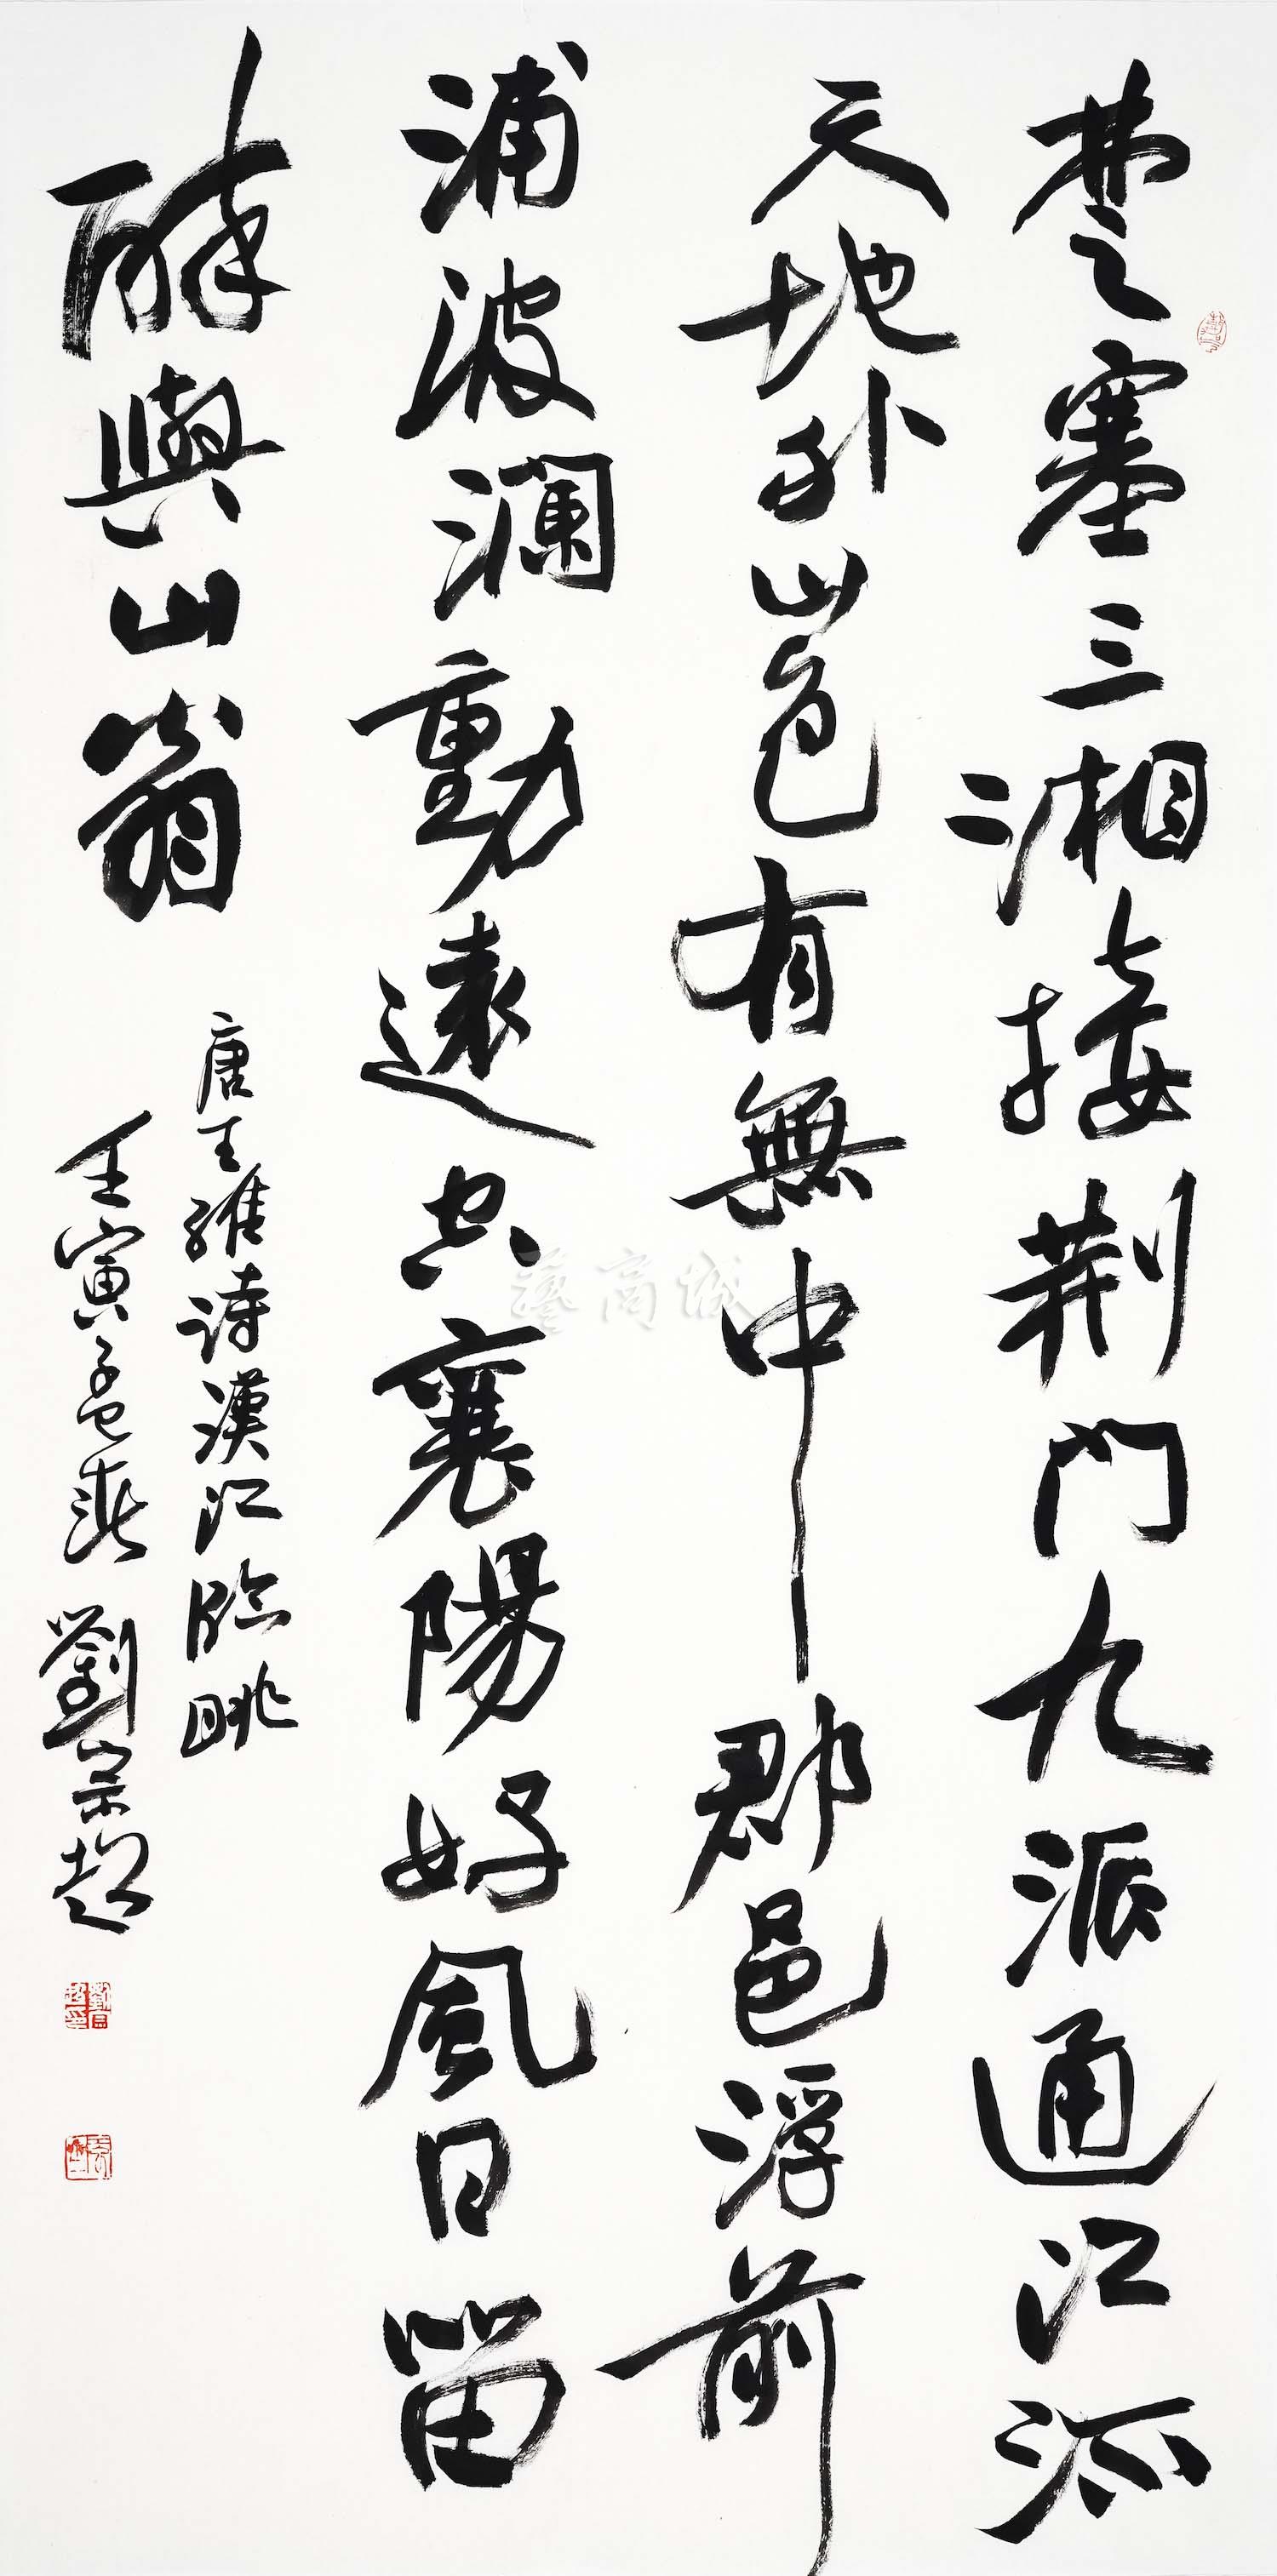 楚塞三湘接荆门九派通江流
天地外山色有無中郡邑浮前
浦波澜動遠空襄陽好風日留
醉與山翁
唐王維诗漢江臨眺
壬寅孟春 劉宗超
劉宗超印
藝商城